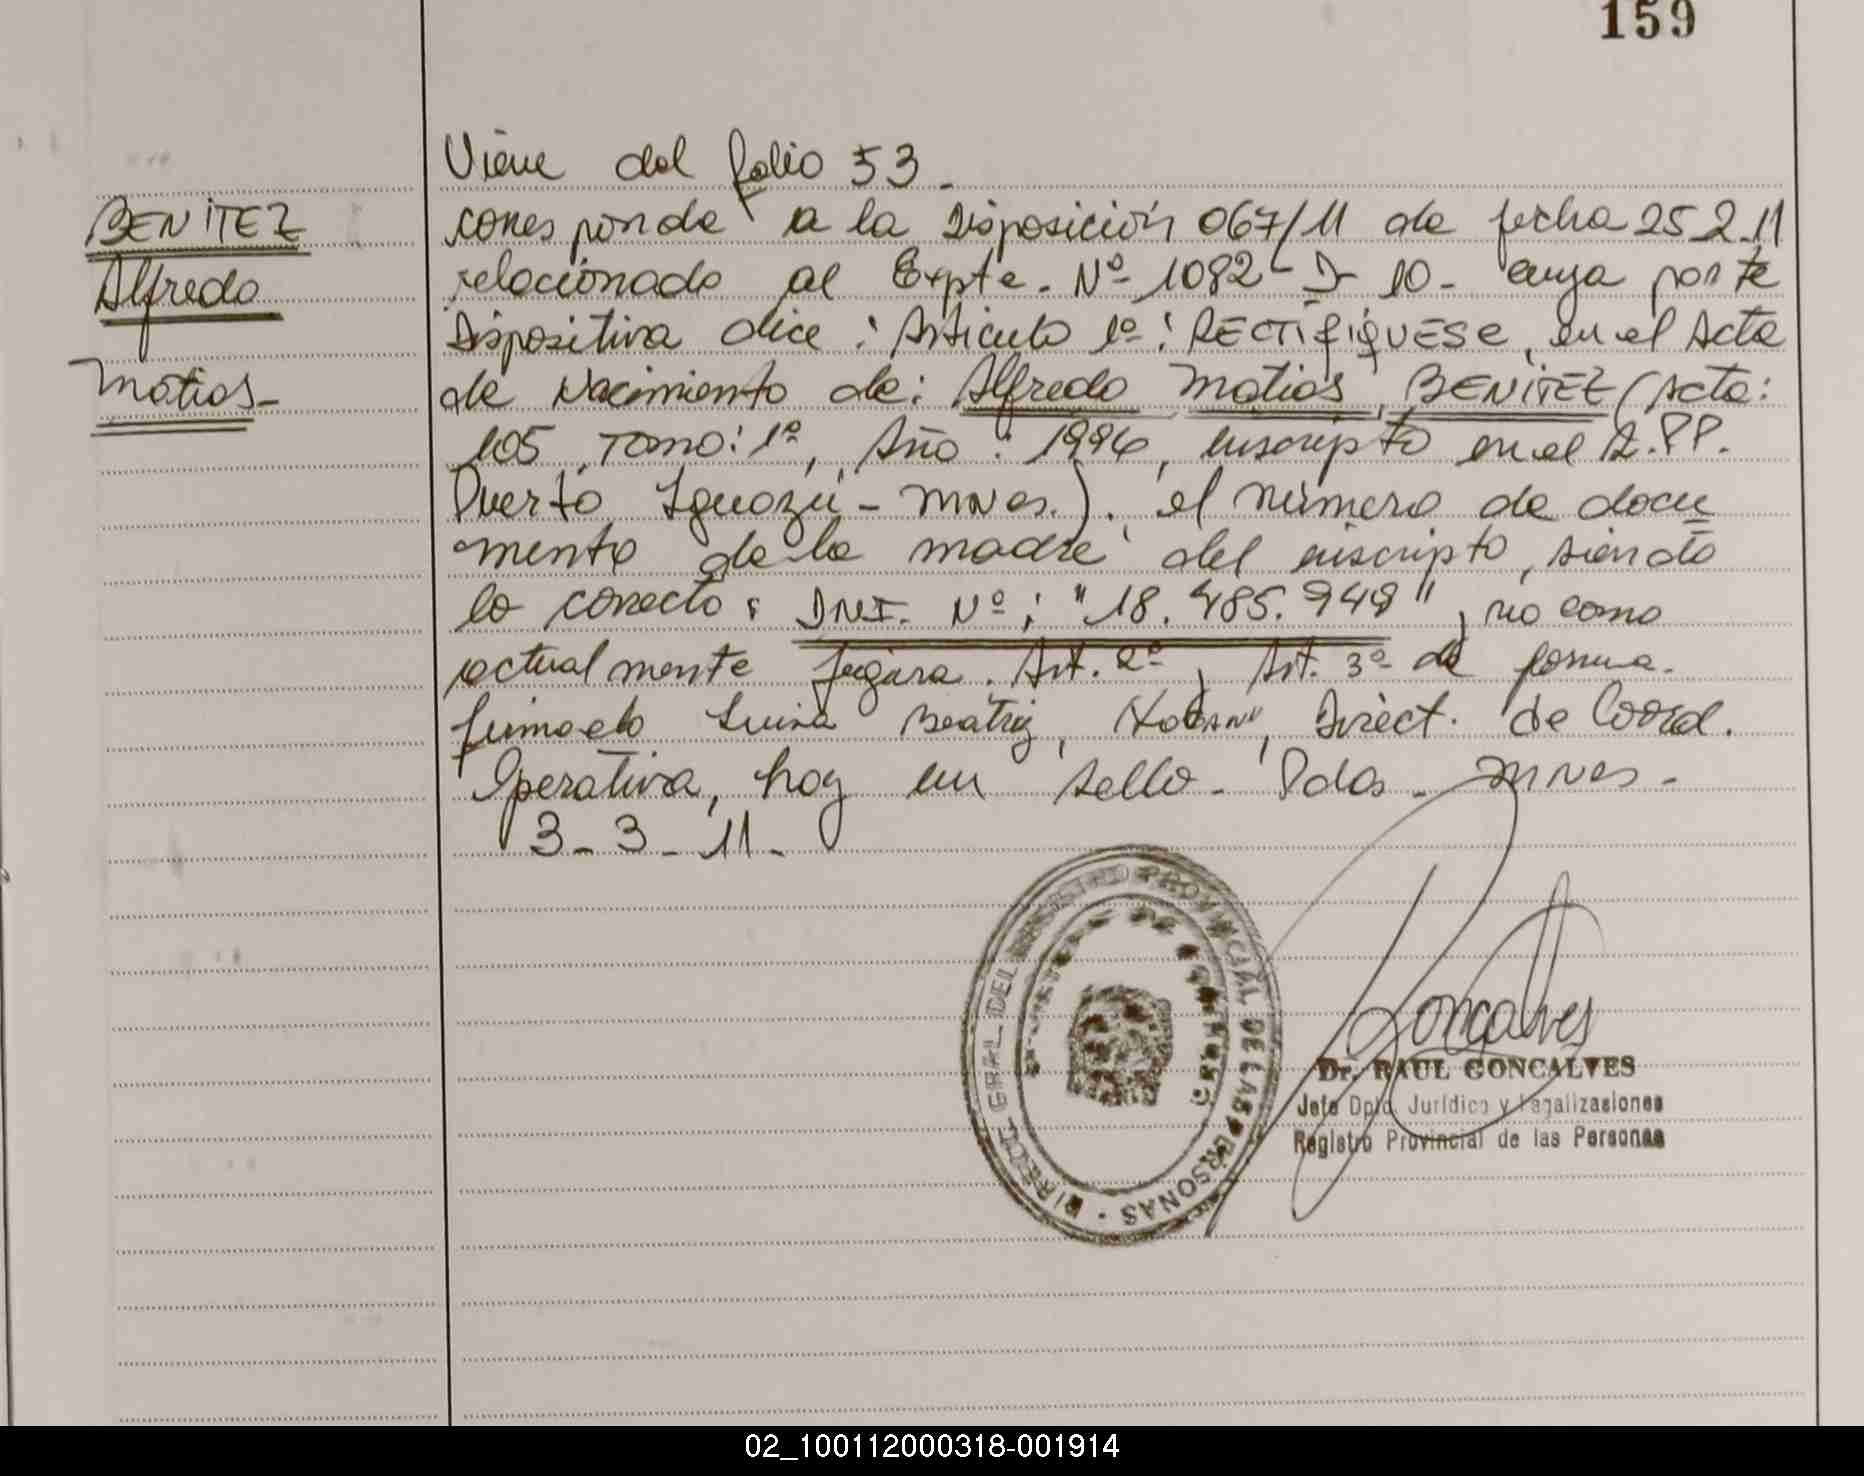 159
Viene del folio 53.
BENITEZ
Alfredo
Matias-
corresponde a la Disposición 067/11 de fecha 25.2.11
relacionado al Expte. Nº 1082-D-10- cuya parte
Dispositiva dice: Articulo 1º: RECTIFIQUESE, en el Acta
de Nacimiento de: Alfredo Matias, BENITEZ (Acta:
105, Tomo: 1º, Año: 1996, inscripto en el R.PP.
Puerto Iguazú - Mnes.). el número de docu
mento de la madre del inscripto, siendo
lo correcto: DNI. Nº: "18.485.949", no como
actualmente figura. Art. 2º, Art. 3º de forma.
firmado Luisa Beatriz, Direct. de Coord.
Operativa, hay un sello. Pdas. Mnes-
3-3-11-
DIRECC. GRAL. DEL REGISTRO PROVINCIAL DE LAS PERSONAS -
Gonçalves
Dr. RAUL GONCALVES
Jefe Dpto. Jurídico y Legalizaciones
Registro Provincial de las Personas
02_100112000318-001914